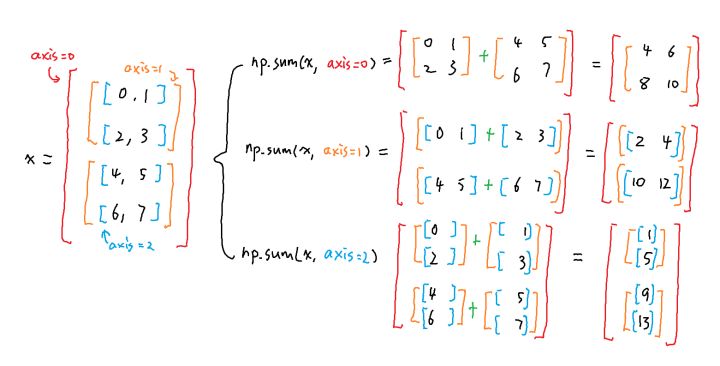 axis=0
axis=1
x = [[[0, 1]
[2, 3]]
[[4, 5]
[6, 7]]]
axis=2
np.sum(x, axis=0) = [[0 1
2 3] + [4 5
6 7]] = [[4 6
8 10]]
np.sum(x, axis=1) = [[[0 1] + [2 3]]
[[4 5] + [6 7]]] = [[[2 4]]
[[10 12]]]
np.sum(x, axis=2) [[[0 ]
[2 ]] + [[ 1]
[ 3]]
[[4 ]
[6 ]] + [[ 5]
[ 7]]] = [[[1]
[5]]
[[9]
[13]]]